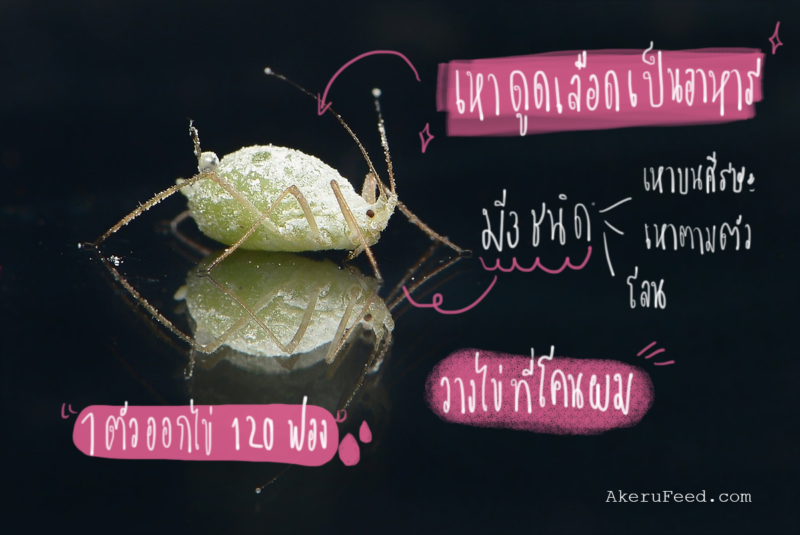 เหา ดูดเลือดเป็นอาหาร
มี 3 ชนิด
เหาบนศีรษะ
เหาตามตัว
โลน
วางไข่ ที่โคนผม
1 ตัว ออกไข่ 120 ฟอง
AkeruFeed.com